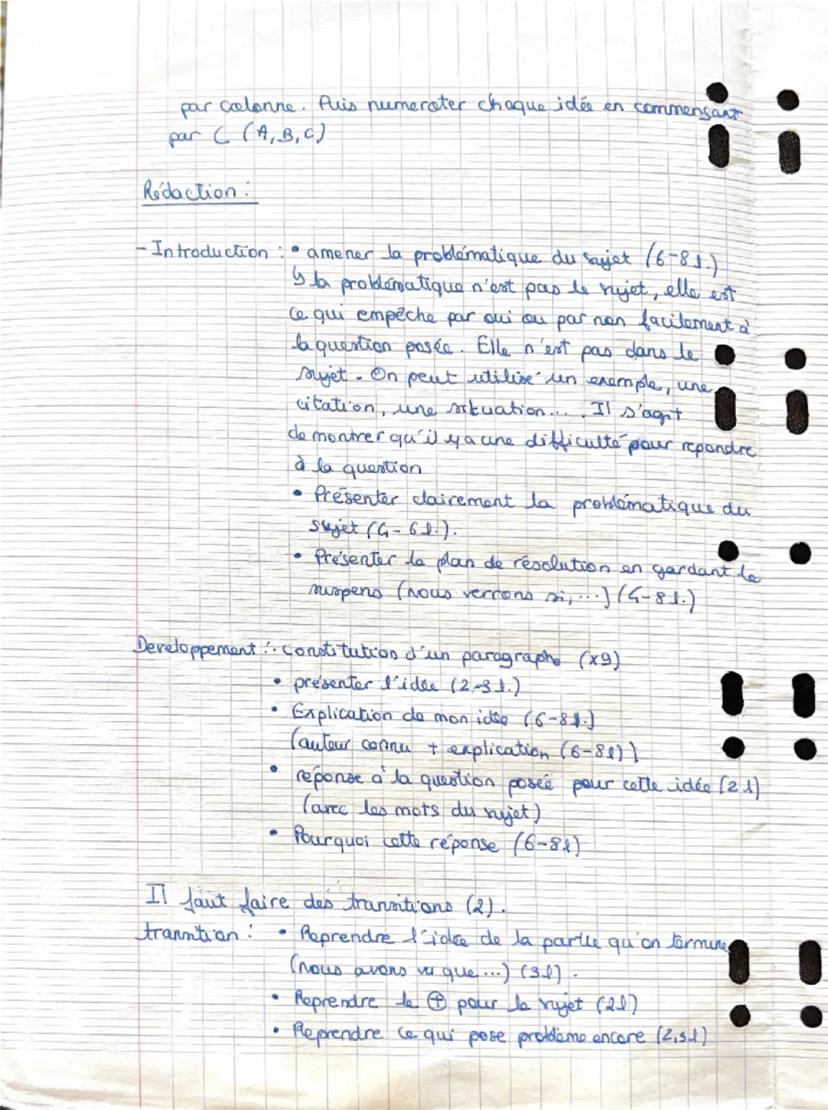 par colonne. Puis numeroter chaque idée en commensant
par C (A, B, C)
Rédaction :
- Introduction : • amener la problématique du sujet (6-8 l.)
↳ la problématique n'est pas le sujet, elle est
ce qui empêche par oui ou par non facilement à
la question posée. Elle n'est pas dans le
sujet. On peut utilisé un exemple, une
citation, une situation... Il s'agit
de montrer qu'il y a une difficulté pour repondre
à la question
• Présenter clairement la problématique du
sujet (4-6 l.).
• Présenter le plan de résolution en gardant le
suspens (nous verrons si, ...) (4-8 l.)
Developpement : • constitution d'un paragraphe (x9)
• présenter l'idée (2-3 l.)
• Explication de mon idée (6-8 l.)
(auteur connu + explication (6-8 l))
• réponse à la question posée pour cette idée (2 l)
(avec les mots du sujet)
• Pourquoi cette réponse (6-8 l)
Il faut faire des transitions (2).
transition : • Reprendre l'idée de la partie qu'on termine
(nous avons vu que ...) (3 l).
• Reprendre le ⊕ pour le sujet (2 l)
• Reprendre ce qui pose problème encore (2,3 l)